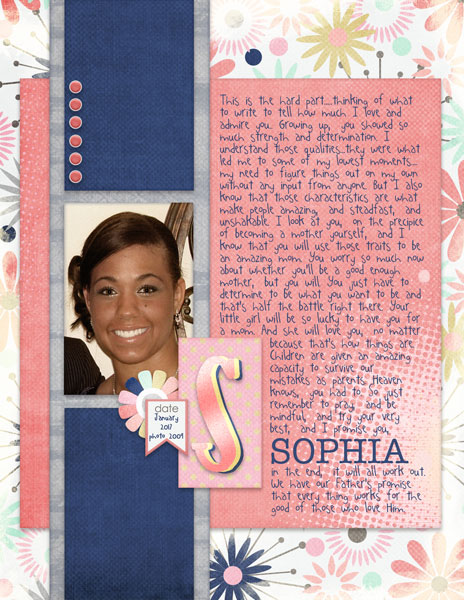 This is the hard part....thinking of what
to write to tell how much I love and
admire you. Growing up, you showed so
much strength and determination. I
understand those qualities...they were what
led me to some of my lowest moments...
my need to figure things out on my own
without any input from anyone. But I also
know that those characteristics are what
make people amazing, and steadfast, and
unshakable. I look at you, on the precipice
of becoming a mother yourself, and I
know that you will use those traits to be
an amazing mom. You worry so much now
about whether you'll be a good enough
mother, but you will. You just have to
determine to be what you want to be and
that's half the battle right there. Your
little girl will be so lucky to have you for
a mom. And she will love you, no matter
because that's how things are.
Children are given an amazing
capacity to survive our
mistakes as parents. Heaven
knows, you had to. So just
remember to pray, and be
mindful, and try your very
best, and I promise you,
SOPHIA
in the end, it will all work out.
We have our Father's promise
that every thing works for the
good of those who love Him.
date
January
2017
photo 2009
S